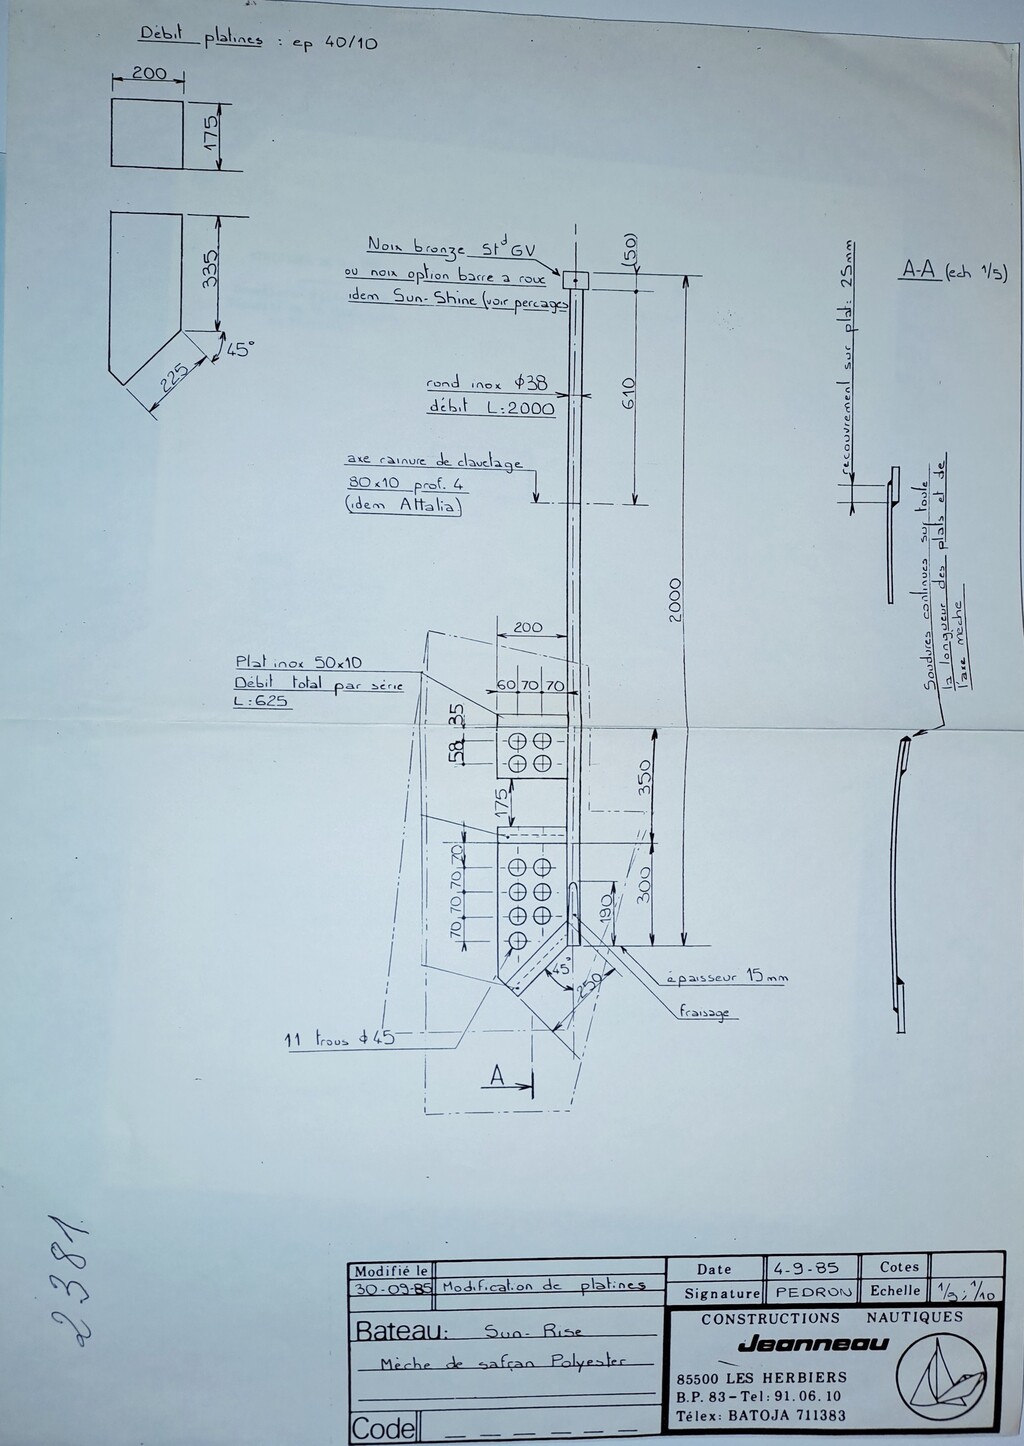 Débit platines : ep 40/10
200
175
335
225
45°
Noix bronze Stᵈ GV
ou noix option barre a roue
idem Sun-Shine (voir percages
(50)
A-A (ech 1/5)
recouvrement sur plat: 25mm
rond inox ϕ38
débit L:2000
610
axe rainure de clavetage
80x10 prof. 4
(idem Attalia)
2000
Soudures continues sur toute
la longueur des plats et de
l'axe mèche
200
Plat inox 50x10
Débit total par série
L:625
60 70 70
35
58
175
350
70
70
70
70
300
190
45°
250
épaisseur 15mm
fraisage
11 trous ϕ45
A
2381
Modifié le
30-09-85 Modification de platines
Date 4-9-85 Cotes
Signature PEDRON Echelle 1/5; 1/10
Bateau: Sun-Rise
Mèche de safran Polyester
Code
CONSTRUCTIONS NAUTIQUES
Jeanneau
85500 LES HERBIERS
B.P. 83-Tel: 91.06.10
Télex: BATOJA 711383